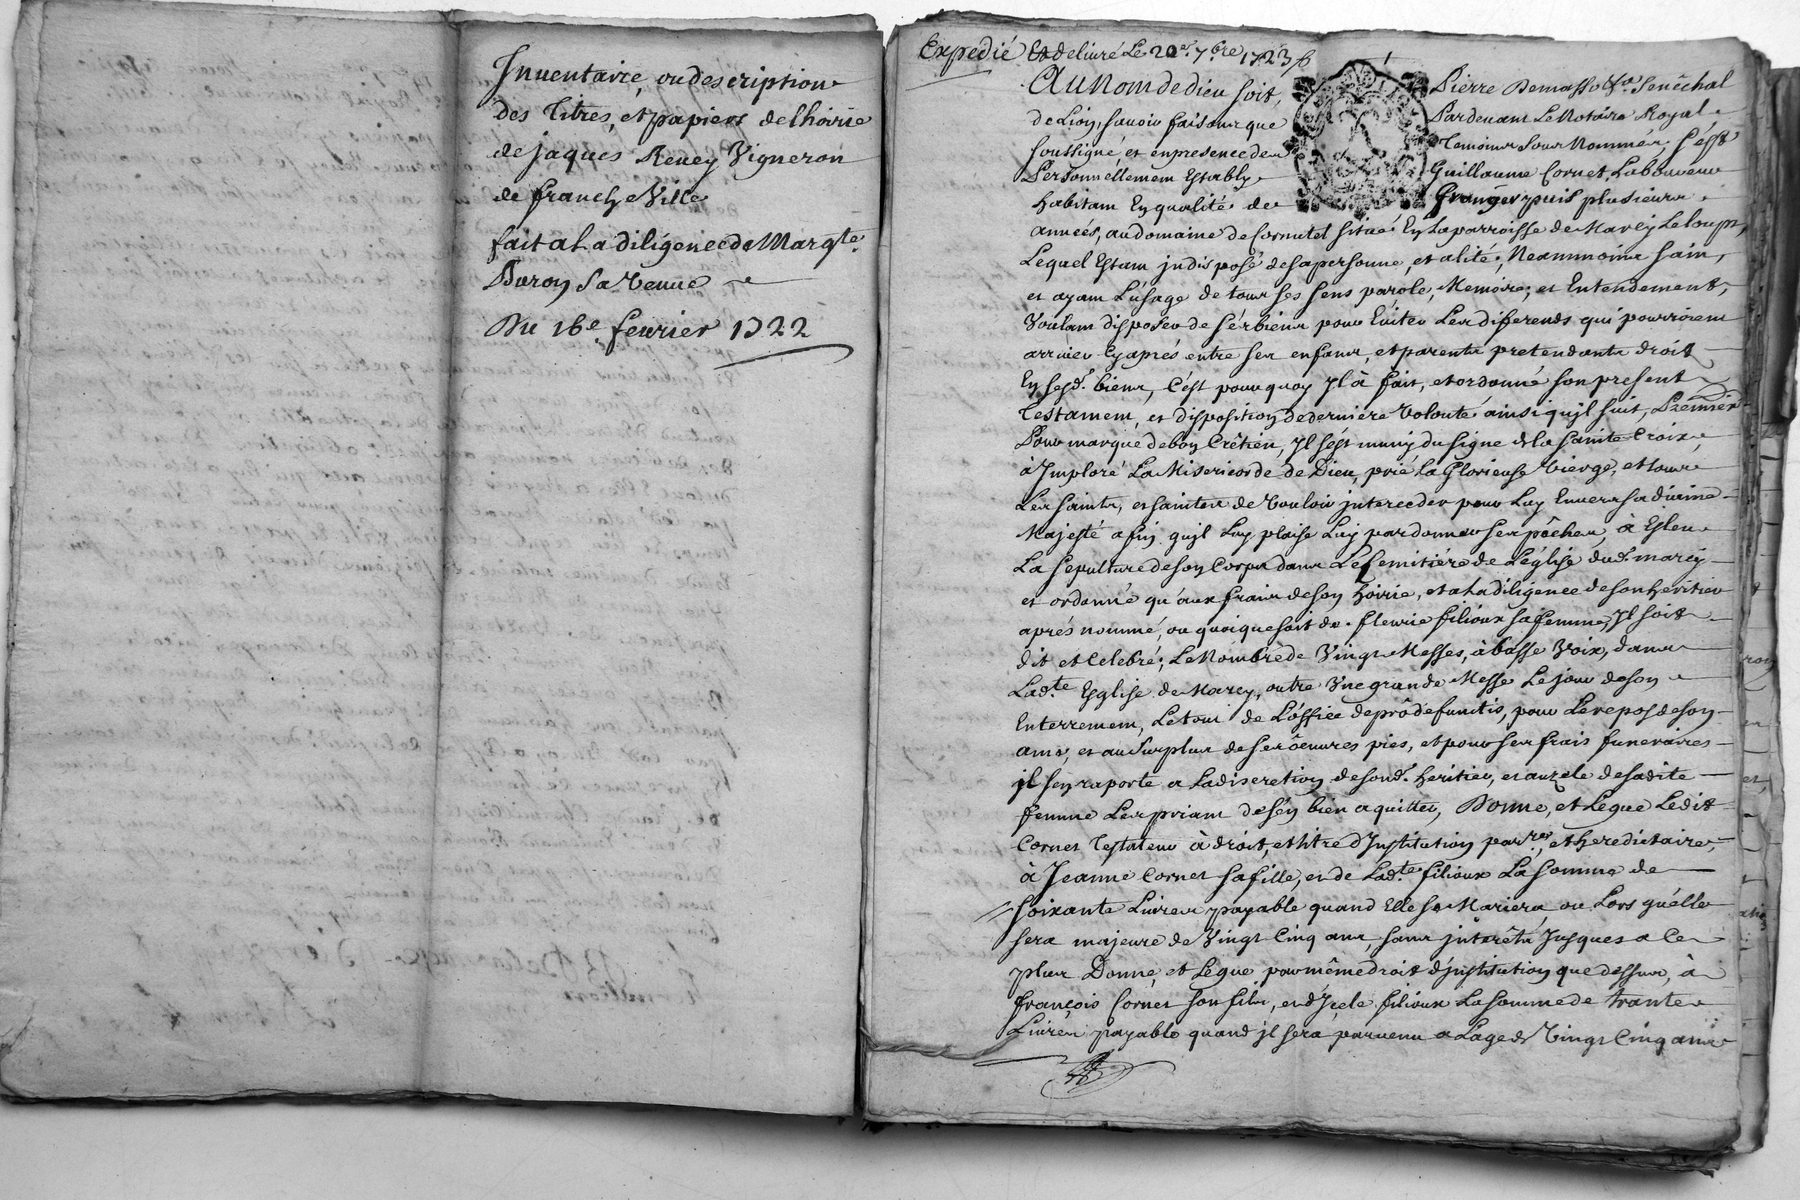 Inventaire, ou description
des Titres, et papiers de l'hoirie
de jaques Reney Vigneron
de francheville
fait a La diligence de Margte.
Buron Sa Veuve
Du 16e fevrier 1722
Expedié Et deliuré Le 20e. 7bre 1723
Au Nom de Dieu soit, Pierre Demasso Senéchal
de Lion, savoir faisons que Pardevant Le Notaire Royal
soussigné et en presence des Temoins Sous Nommés, s'est
Personnellement Estably Guillaume Cornet Laboureur
habitant En qualité de Granger puis plusieurs
années, au domaine de Cornutel situé En La parroisse de Marcy Le loup,
Lequel Estant jndisposé de sa personne, et alité, Neanmmoins sain,
et ayant L'usage de tous ses sens parole, Memoire, et Entendement,
Voulant disposer de ses biens pour Euiter Les differends qui pourroient
arriuer Cy aprés entre ses enfans, et parents pretendants droit
En sesd. biens, C'est pourquoy Jl à fait, et ordonné son present
Testament, et disposition de derniere Volonté ainsi qu'jl suit, Premier
Pour marque de bon Crêtien, Jl s'est muny du signe de la sainte Croix,
à Jmploré La Misericorde de Dieu, prié La Glorieuse Vierge, et tous
Les saints, et saintes de Vouloir jnterceder pour Luy Enuers sa diuine
Majesté afin qu'jl Luy plaise Luy pardonner ses pêchés, à Esleu
La sepulture de son Corps dans Le Cemitiére de L'église dud. marcy
et ordonné qu'aux frais de son hoirie, et a La diligence de son heritier
aprés nommé, ou quoique soit de fleurie filioux sa femme, Jl soit
dit et Celebré, Le Nombre de Vingt Messes, à basse Voix, dans
Ladte Esglise de Marcy, outre Vne grande Messe Le jour de son
Enterrement, Le tout de L'office de prô defunctis, pour Le repos de son
ame, et au Surplus de ses oeuures pies, et pour ses frais funeraires
jl s'en raporte a La discretion de sond. heritier, et au zele de sadite
femme Les priant de s'en bien aquitter, Donne, et Legue Ledit
Cornet Testateur à droit, et titre d'Jnstitution parre. et hereditaire,
à Jeanne Cornet sa fille, et de Ladte filioux La somme de
soixante Liures payable quand Elle se Mariera, ou Lors qu'elle
sera majeure de Vingt Cinq ans, sans jnterêts Jusques a Ce
plus Donne, et Légue par même droit d'jnstitution que dessus, à
françois Cornet son fils, et d'Jcele filioux La somme de trante
Liures payable quand jl sera paruenu a L'age de Vingt Cinq ans